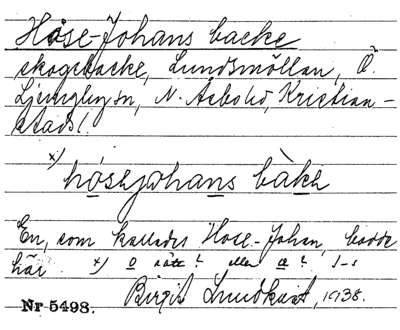 Hose-Johans backe
skogsbacke, Lundsmöllan, Ö.
Ljungbyn, N. Åsbo hd, Kristian-
stads l.
x) hosejohans bàke
En, som kallades Hose-Johan, bodde
här. x) o rätt? eller a?
Birgit Lundkvist, 1938.
Nr 5498.